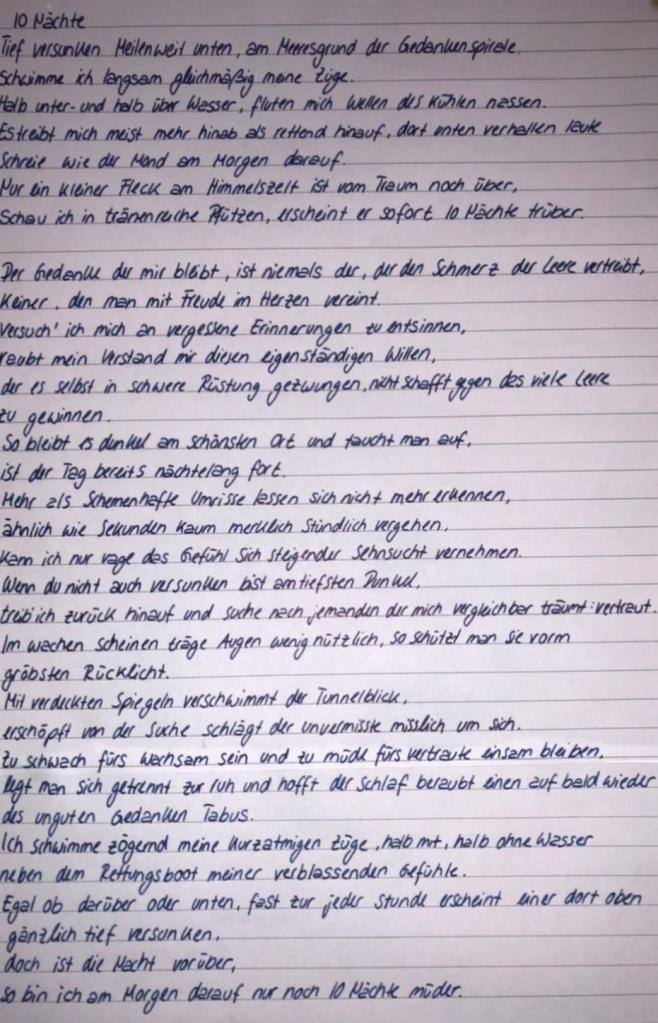 10 Nächte
Tief versunken Meilenweit unten, am Meeresgrund der Gedankenspirale.
Schwimme ich langsam gleichmäßig meine Züge.
Halb unter- und halb über Wasser, fluten mich Wellen des Kühlen nassen.
Es treibt mich meist mehr hinab als rettend hinauf, dort unten verhallen laute
Schreie wie der Mond am Morgen darauf.
Nur ein kleiner Fleck am Himmelszelt ist vom Traum noch über,
Schau ich in tränenreiche Pfützen, erscheint er sofort 10 Nächte trüber.
Der Gedanke der mir bleibt, ist niemals der, der den Schmerz der leere vertreibt,
Keiner, den man mit Freude im Herzen vereint.
Versuch' ich mich an vergessene Erinnerungen zu entsinnen,
raubt mein Verstand mir diesen eigenständigen Willen,
der es selbst in schwere Rüstung gezwungen, nicht schafft gegen das viele leere
zu gewinnen.
So bleibt es dunkel am schönsten Ort und taucht man auf,
ist der Tag bereits nächtelang fort.
Mehr als Schemenhafte Umrisse lassen sich nicht mehr erkennen,
ähnlich wie Sekunden kaum merklich Stündlich vergehen,
kann ich nur vage das Gefühl sich steigender Sehnsucht vernehmen.
Wenn du nicht auch versunken bist am tiefsten Punkt,
treib ich zurück hinauf und suche nach jemanden der mich vergleichbar träumt: vertraut.
Im wachen scheinen träge Augen wenig nützlich, so schützt man sie vorm
gröbsten Rücklicht.
Mit verdeckten Spiegeln verschwimmt der Tunnelblick,
erschöpft von der Suche schlägt der unvermisste misslich um sich.
Zu schwach fürs wachsam sein und zu müde fürs vertraute einsam bleiben,
legt man sich getrennt zur ruh und hofft der Schlaf beraubt einen auf bald wieder
des unguten Gedanken Tabus.
Ich schwimme zögernd meine kurzatmigen Züge, halb mit, halb ohne Wasser
neben dem Rettungsboot meiner verblassenden Gefühle.
Egal ob darüber oder unten, fast zur jeder Stunde erscheint einer dort oben
gänzlich tief versunken,
doch ist die Nacht vorüber,
so bin ich am Morgen darauf nur noch 10 Nächte müder.